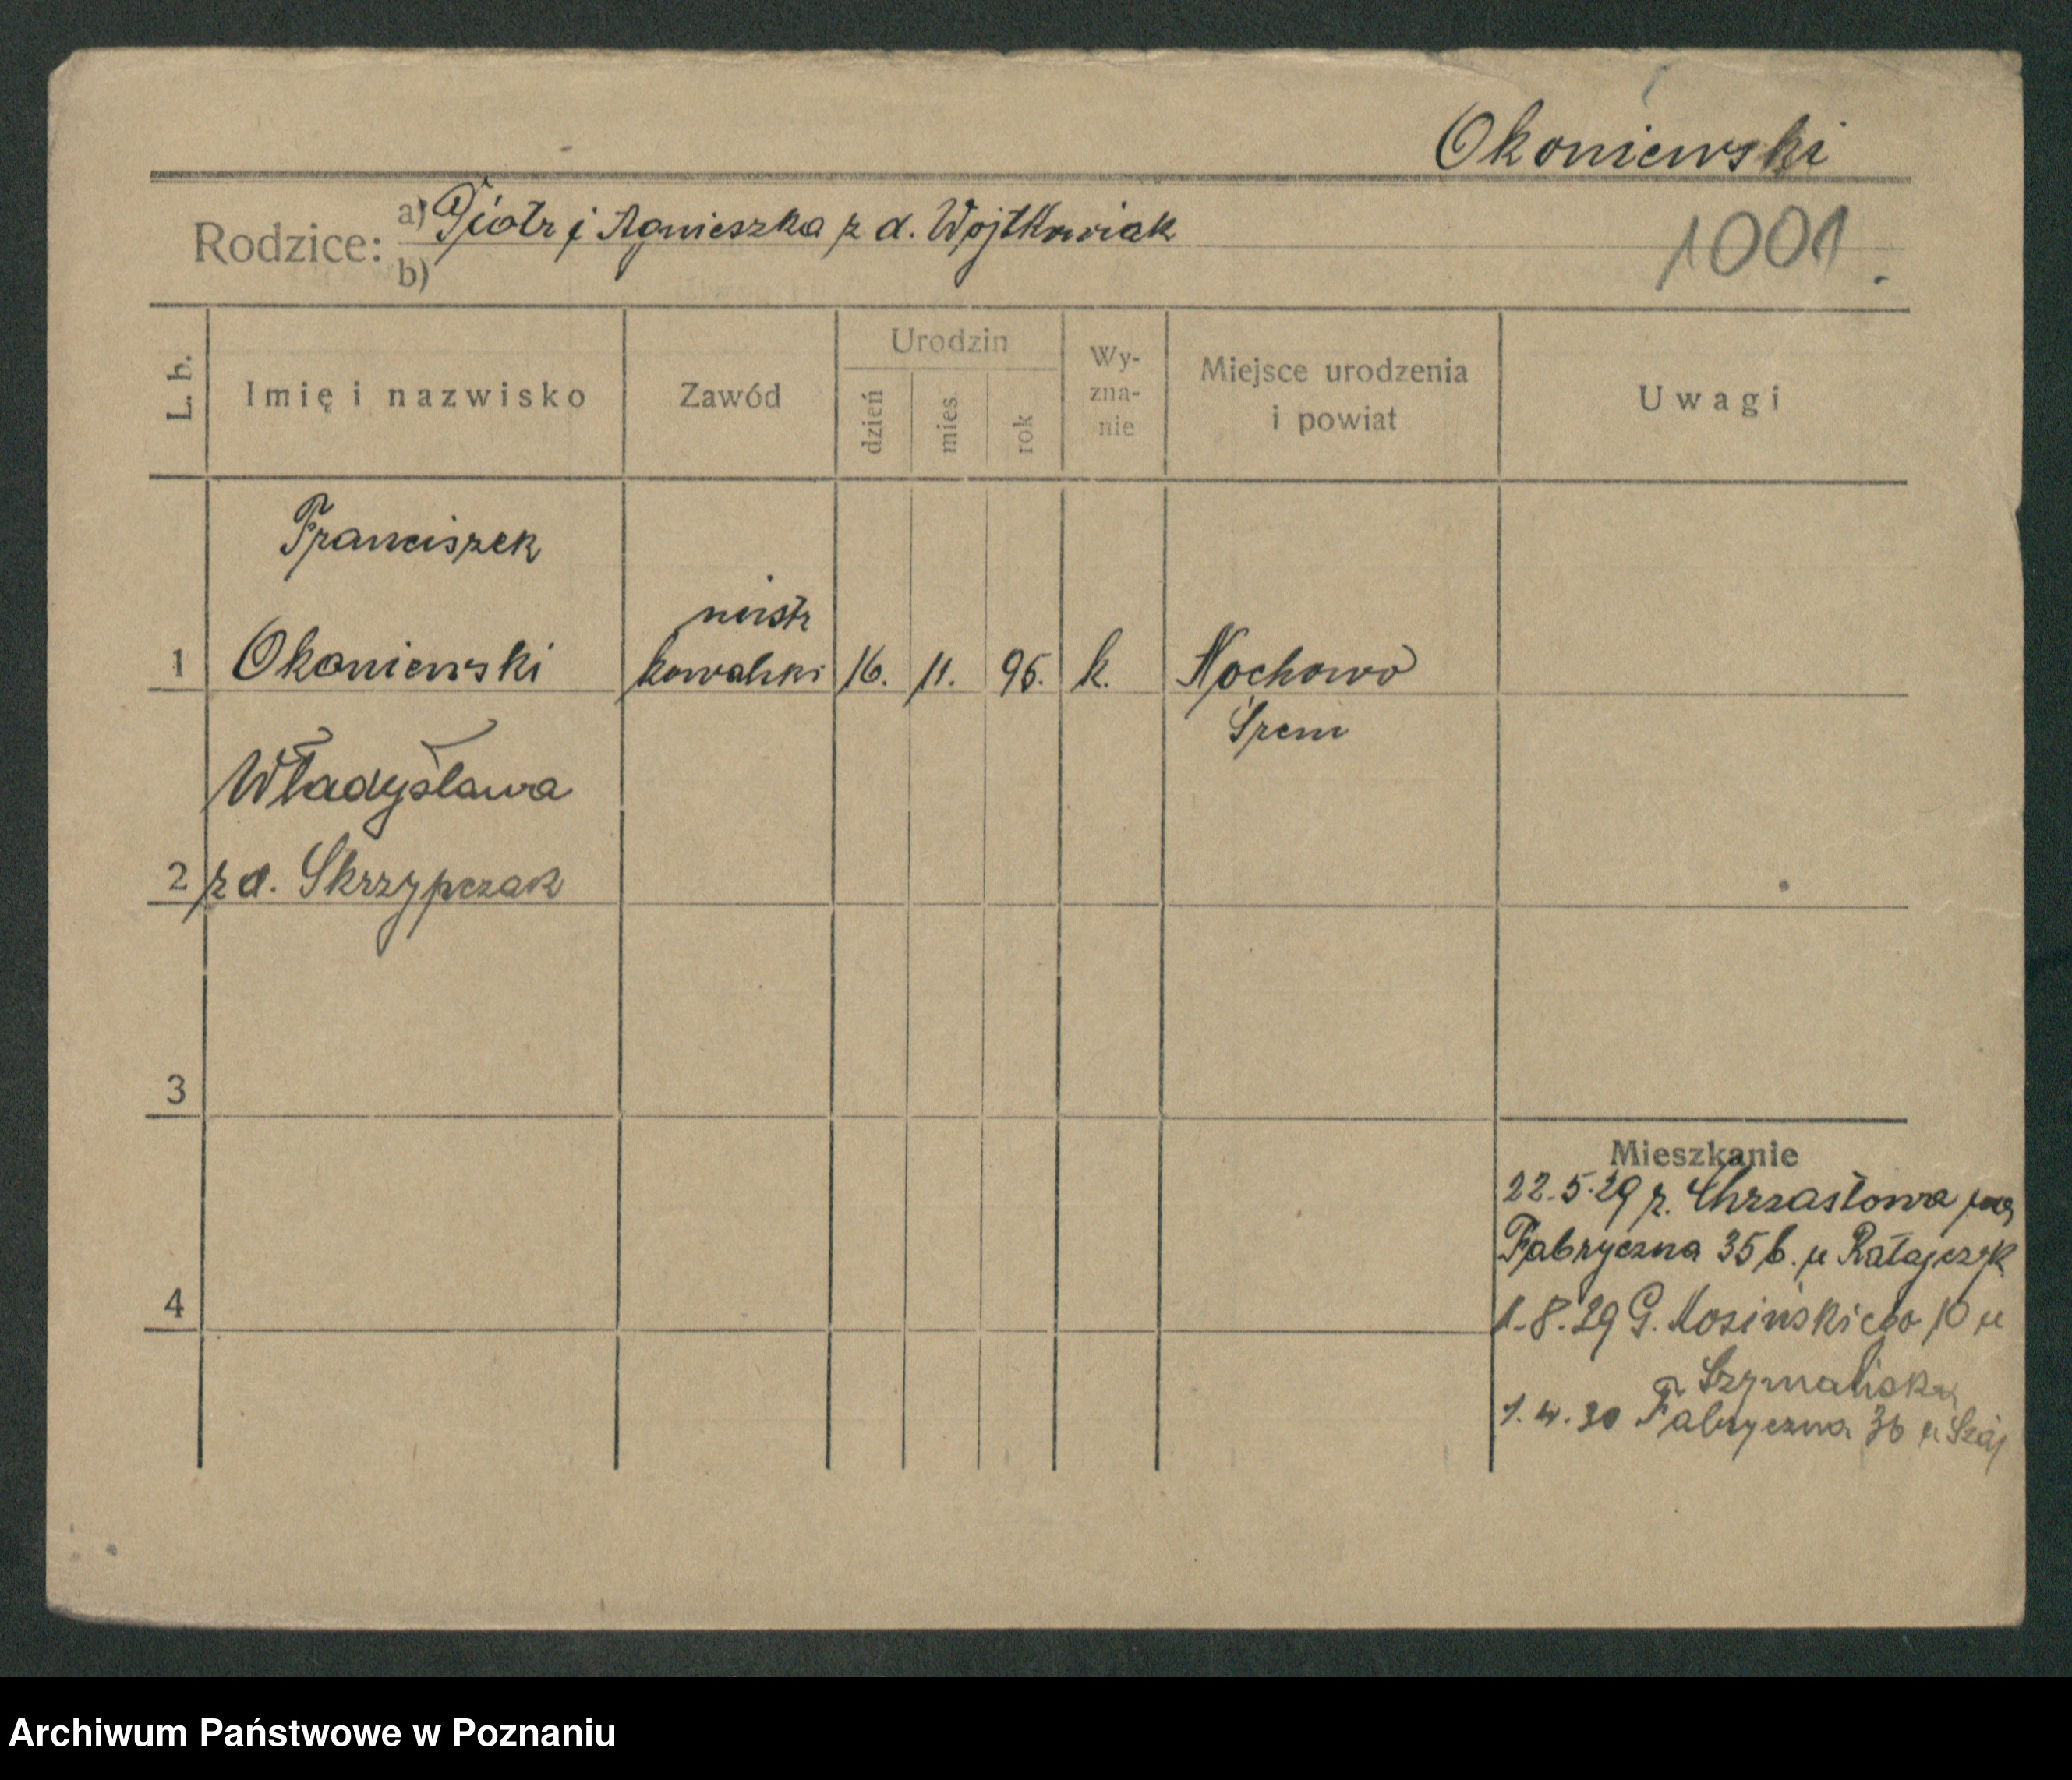 Okoniewski
Rodzice: a) Piotr i Agnieszka z d. Wojtkowiak
b)
1001.
L. b.
Imię i nazwisko
Zawód
Urodzin
dzień
mies.
rok
Wy-
zna-
nie
Miejsce urodzenia
i powiat
Uwagi
Franciszek
mistr
1 Okoniewski kowalski 16. 11. 95. k. Nochowo
Śrem
Władysława
2 z d. Skrzypczak
3
4
Mieszkanie
22.5.29 z. Chrzastowa
Fabryczna 35 b. u Ratajczyk
1.8.29 G. Kosińskiego 10 u
Szymańska
1.4.30 Fabryczna 36 u
Archiwum Państwowe w Poznaniu